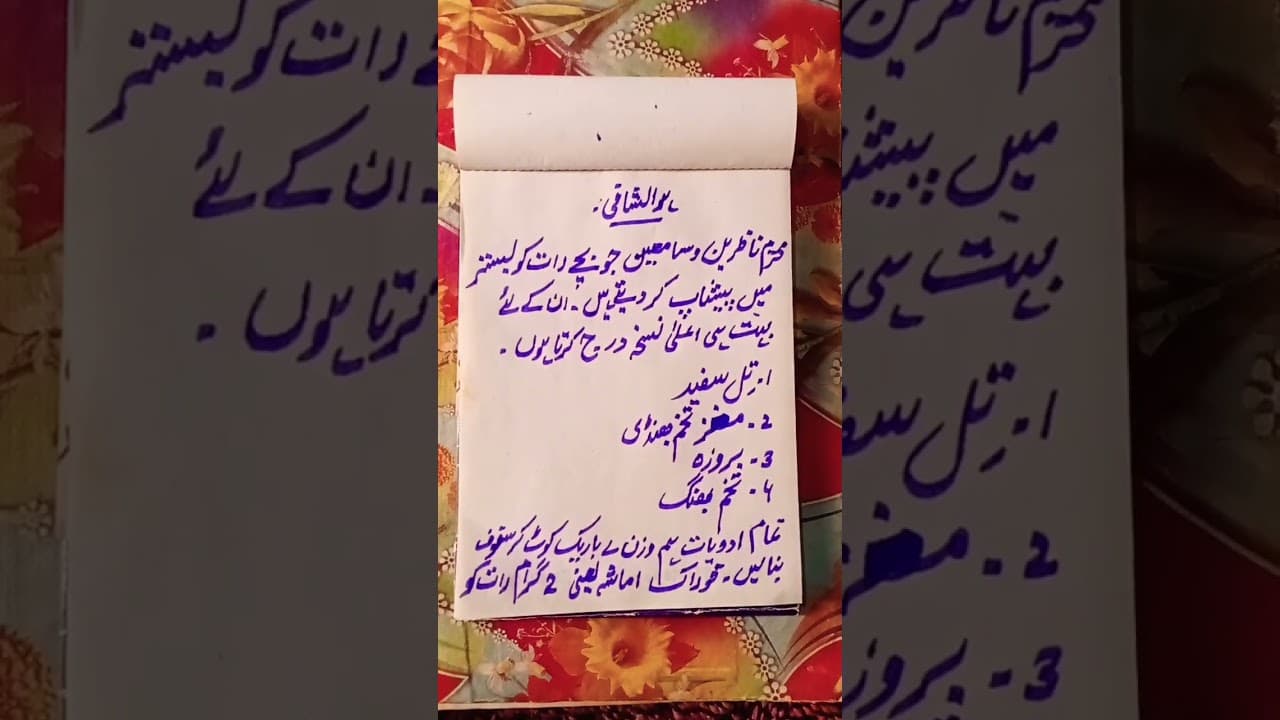 ہوالشافی۔
محترم ناظرین وسامعین جو بچے رات کو بستر
میں پیشاپ کر دیتے ہیں۔ ان کے لئے
بہت ہی اعلیٰ نسخہ درج کرتا ہوں۔
1۔ تل سفید
2۔ مغز تخم بھنڈی
3۔ بروزہ
4۔ تخم بھنگ
تمام ادویات ہم وزن لے باریک کوٹ کر سفوف
بنائیں۔ خوراک 1 ماشہ یعنی 2 گرام رات کو